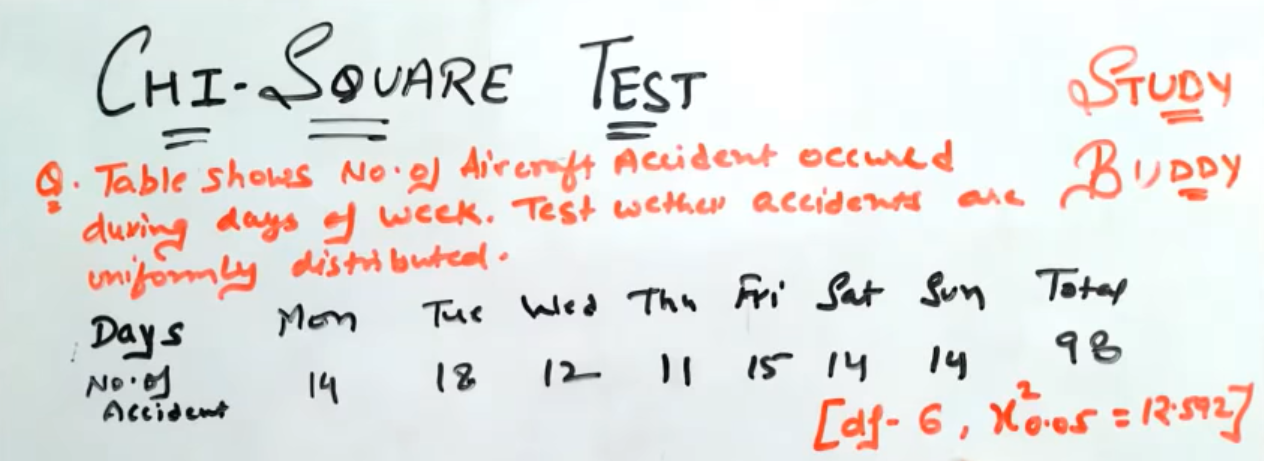 CHI-SQUARE TEST
STUDY
BUDDY
Q. Table shows No. of Aircraft Accident occured
during days of week. Test wether accidents are
uniformly distributed.
Days Mon Tue Wed Thu Fri Sat Sun Total
No. of Accident 14 18 12 11 15 14 14 98
[df- 6, χ²0.05 = 12.592]